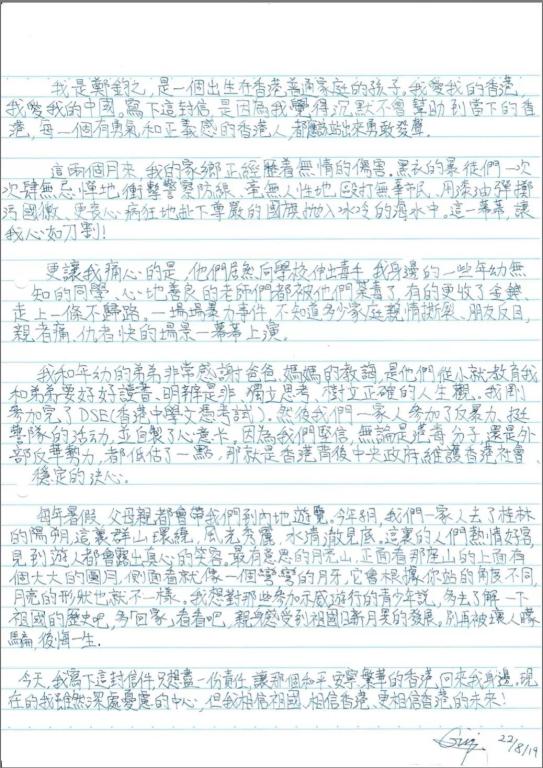 我是鄭鈞之,是一個出生在香港普通家庭的孩子,我愛我的香港,
我愛我的中國。寫下這封信,是因為我覺得沉默不會幫助到當下的香
港,每一個有勇氣和正義感的香港人,都應站出來勇敢發聲.
這兩個月來,我的家鄉正經歷著無情的傷害.黑衣的暴徒們一次
次肆無忌憚地衝擊警察防線、毫無人性地毆打無辜市民、用漆油彈擲
污國徽、更喪心病狂地扯下尊嚴的國旗拋入冰冷的海水中。這一幕幕,讓
我心如刀割!
更讓我痛心的是,他們居然向學校伸出毒手,我身邊的一些年幼無
知的同學、心地善良的老師們都被他們荼毒了,有的更收了金錢、
走上一條不歸路。一場場暴力事件,不知道多少家庭親情撕裂、朋友反目,
親者痛、仇者快的場景一幕幕上演。
我和年幼的弟弟非常感謝爸爸、媽媽的教誨,是他們從小就教育我
和弟弟要好好讀書、明辨是非、獨立思考、樹立正確的人生觀。我剛
參加完了DSE(香港中學文憑考試),然後我們一家人參加了反暴力、挺
警隊的活动,並自製了心意卡。因為我們堅信,無論是港毒分子,還是外
部反華勢力,都低估了一點,那就是香港背後中央政府維護香港社會
穩定的決心。
每年暑假,父母親都會帶我們到內地遊覽。今年8月,我們一家人去了桂林
的陽朔,這裏群山環繞,風光秀麗,水清澈見底。這裏的人們熱情好客,
見到遊人都會露出真心的笑容。最有意思的月亮山,正面看那座山的上面有
個大大的圓月,側面看就像一個彎彎的月牙,它會根據你站的角度不同,
月亮的形狀也就不一樣。我想對那些參加示威遊行的青少年說,多去了解一下
祖國的歷史吧,多「回家」看看吧,親身感受到祖國日新月異的發展。別再被壞人矇
騙,後悔一生.
今天,我寫下這封信件,只想盡一份責任,讓那個和平、安寧、繁華的香港,回來我身邊,現
在的我雖然深處憂慮的中心,但我相信祖國、相信香港、更相信香港的未來!
22/8/19